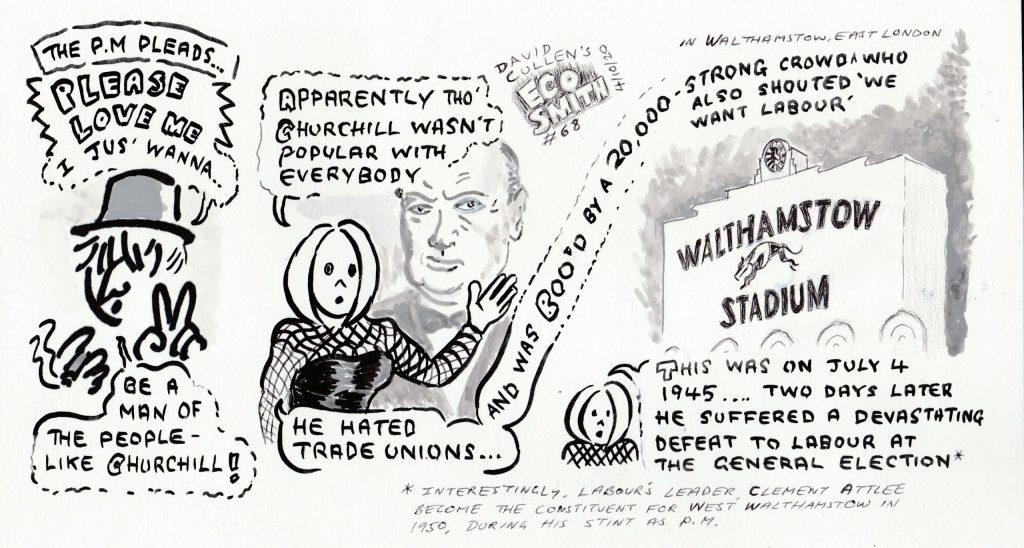 THE P.M PLEADS...
PLEASE
LOVE ME
I JUS' WANNA
BE A
MAN OF
THE PEOPLE-
LIKE CHURCHILL!
APPARENTLY THO'
CHURCHILL WASN'T
POPULAR WITH
EVERYBODY
HE HATED
TRADE UNIONS...
DAVID
CULLEN'S
ECO
SMITH
#68
14/10/20
AND WAS BOO'D BY A 20,000-STRONG CROWD WHO
ALSO SHOUTED 'WE
WANT LABOUR'
IN WALTHAMSTOW, EAST LONDON
WALTHAMSTOW
STADIUM
THIS WAS ON JULY 4
1945.... TWO DAYS LATER
HE SUFFERED A DEVASTATING
DEFEAT TO LABOUR AT
THE GENERAL ELECTION*
* INTERESTINGLY, LABOUR'S LEADER, CLEMENT ATTLEE
BECOME THE CONSTITUENT FOR WEST WALTHAMSTOW IN
1950, DURING HIS STINT AS P.M.